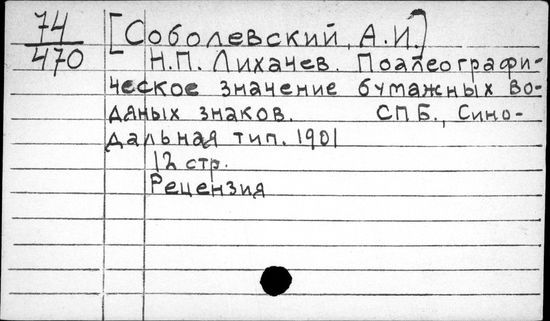 74
470
[Соболевский, А.И.]
Н.П. Лихачев. Поалеографи-
ческое значение бумажных во-
дяных знаков. СПБ., Сино-
дальная тип. 1901
12 стр.
Рецензия